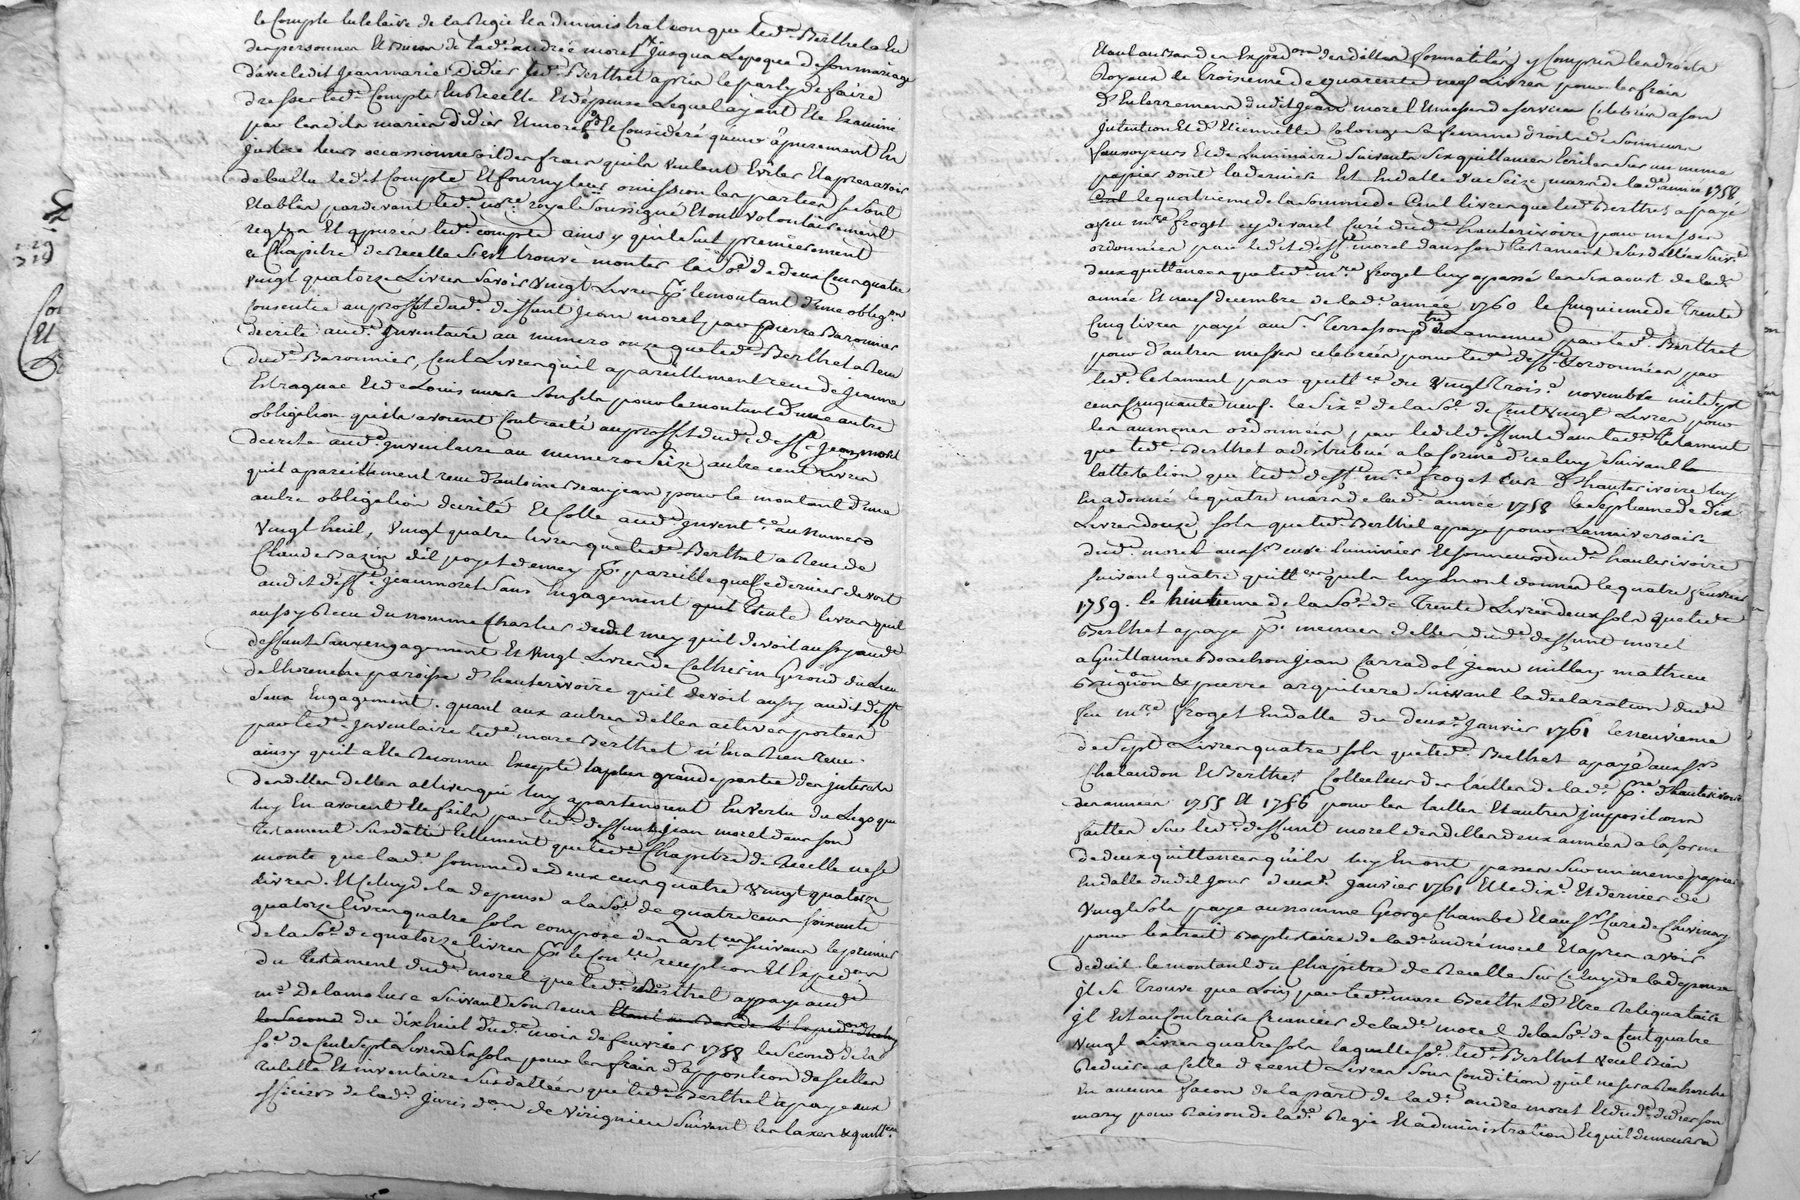 le Compte tutelaire de la Regie et administration que led.t Berthet a eu
des personnes et Biens de lad.e andrée morel jusqua Lepoque de son mariage
d'avec ledit Jean marie Didier led.t Berthet a pris le party de faire
dresser led.t Compte en Recette et depense Lequel ayant ete Examiné
par lesdits mariés Didier et morel et Consideré qu'un apurement En
justice leurs occasionneroit des frais qu'ils veulent Eviter Et apres avoir
debattu ledit Compte et fourny leurs omissions les parties se sont
Etablies pardevant led.t no.re royal soussigné et ont volontairement
reglés et apurés led.t compte ainsy qu'il suit premierement
le Chapitre de Recette s'est trouvé monter la So.e de deux Cens quatre
vingt quatorze Livres Savoir vingt Livres p.r le montant d'une oblig.on
Consentie au proffit dud.t deffunt Jean morel par pierre Baronnier
decrite aud.t Inventaire au numero onze que led.t Berthet a Recu
dud.t Baronnier, Cent Livres qu'il a pareillement recu de jeanne
Estragnac et de Louis son fils pour le montant d'une autre
obligation qu'ils avoient Contracté au proffit dud.t deff.t Jean morel
decrite aud.t Inventaire au numero Seize, autre cent Livres
qu'il a pareillement recu d'antoine Beaujean pour le montant d'une
autre obligation decrite et Cotté aud.t Invent.re au numero
vingt huit, vingt quatre livres que led.t Berthet a Recu de
Claude Bazin d'el poyet demey p.r pareille que Ce dernier devoit
audit deff.t Jean morel Sans Engagement, trente livres qu'il
aussy Recu du nommé Charles du mey qu'il devoit aussy aud.t
deffunt Sans engagement et vingt Livres de Catherin Giroud du Lieu
de paroisse d'hauterivoire qu'il devoit aussy audit deff.t
Sans Engagement. quant aux autres dettes actives portées
par led.t Inventaire led.t marc Berthet n'en a Rien recu
ainsy qu'il a ete Reconnu Excepté la plus grande partie des interets
desdittes dettes actives qui luy appartenoient En vertu du Legs qui
luy En avoient ete faits par led.t deffunt Jean morel dans son
testament susdatté tellement que led.t Chapitre de Recette ne se
monte que lad.e somme de deux cens quatre vingt quatorze
Livres. Et Celuy de la depense a la So.e de quatre cens soixante
quatorze livres quatre sols composé des art.es suivans le premier
de la So.e de quatorze livres p.r le Con.lle reception et Exped.on
du testament dud.t morel que led.t Berthet a payé aud.t
m.e Delamolure suivant Son recu
du dixhuit dud.t mois de fevrier 1758 le Second de la
So.e de Cent Sept Livres Six sols pour les frais d'apposition de scellés
tutelle et inventaire Susdattés que led.t Berthet a payé aux
officiers de lad.e Juris.d.on de virignieu suivant les taxes & quitt.es
Etant au Bas des Exped.ons desdittes formalités y Compris les droits
Royaux le troisieme de quarente neuf Livres pour les frais
d'Enterrement dudit Jean morel Et messes de service Celebrées a son
Intention et d'Etiennette Colonges sa femme droits de Sonneurs
fossoyeurs Et de Luminaire suivant Six quittances Ecrites sur un meme
papier dont la derniere Est En datte du Seize mars de lad.e année 1758
le quatrieme de la somme de Cent livres que led.t Berthet a payé
a feu m.re froget cy devant Curé dud.t hauterivoire pour messes
ordonnées par ledit deff.t morel dans son testament susdatté suiv.t
deux quittances que led.t m.re froget luy a passé les Six aoust de lad.e
année Et neuf decembre de lad.e année 1760 le Cinquieme de trente
Cinq livres payé au S.r Terrasson p.tre de Lamenue par led.t Berthet
pour d'autres messes celebrées pour led.t deff.t & ordonnées par
led.t testament par quitt.ce du vingt trois.e novembre mil sept
cens Cinquante neuf. le Six.e de la So.e de Cent vingt Livres pour
les aumones ordonnées par ledit deffunt dans led.t testament
que led.t Berthet a distribué a la forme d'iceluy suivant
lattestation que led.t deff.t m.re froget Curé d'hauterivoire luy
En a donné le quatre mars de lad.e année 1758 le Septieme de dix
Livres douze sols que led.t Berthet a payé pour Lanniversaire
dud.t morel aux S.rs curé luminier Et sonneurs dud.t hauterivoire
suivant quatre quitt.es qu'ils luy En ont données le quatre fevrier
1759. le huitieme de la So.e de trente Livres deux sols que led.t
Berthet a payé p.r menues dettes dud.t deffunt morel
a Guillaume Bouchon Jean Carradol jeane millery mathieu
Brignon & pierre arquilliere suivant la declaration dud.t
feu m.re froget En datte du deux.e Janvier 1761 le neuvieme
de Sept Livres quatre sols que led.t Berthet a payé aux S.rs
Chalandon Et Berthet Collecteurs des tailles de lad.e p.sse d'hauterivoire
des années 1755 Et 1756 pour les tailles Et autres impositions
faittes sur led.t deffunt morel desdittes deux années a la forme
de deux quittances qu'ils luy En ont passées sur un meme papier
En datte dudit Jour deux.e Janvier 1761 Et le dix.e Et dernier de
vingt sols payé au nommé George Chambe Et au S.r Curé de Chevrieres
pour lextrait Baptistaire de lad.e andré morel Et apres avoir
deduit le montant du Chapitre de Recette sur Celuy de la depense
Il se trouve que Loin par led.t marc Berthet d'Etre Reliquataire
Il Est au Contraire Creancier de lad.e morel de la So.e de Cent quatre
vingt Livres quatre sols laquelle So.e led.t Berthet veut Bien
Reduire a celle de cent Livres sous Condition qu'il ne sera Recherché
En aucune facon de la part de lad.e andré morel Et dud.t didier son
mary pour Raison de lad.e Regie Et administration Et qu'il demeurera